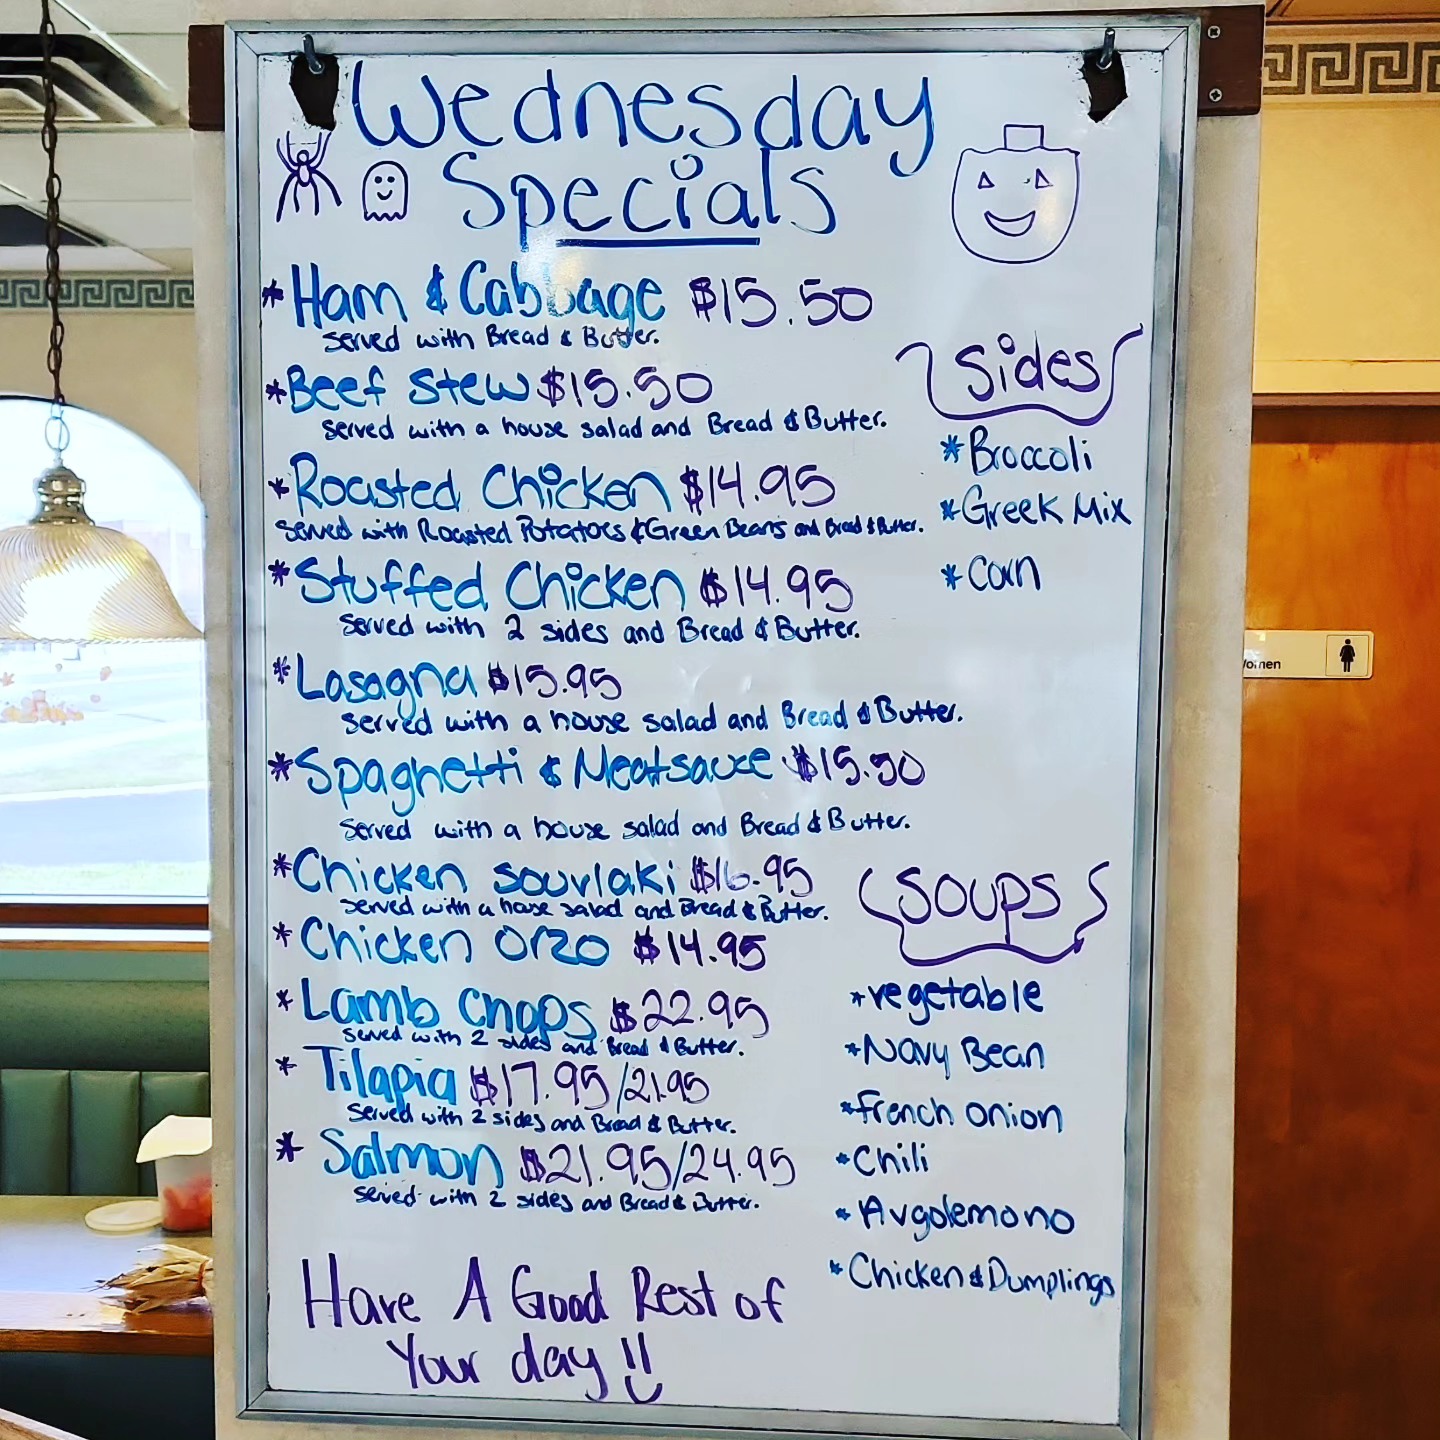 Wednesday
Specials
* Ham & Cabbage $15.50
served with Bread & Butter.
* Beef Stew $15.50
served with a house salad and Bread & Butter.
* Roasted Chicken $14.95
served with Roasted Potatoes & Green Beans and Bread & Butter.
* Stuffed Chicken $14.95
served with 2 sides and Bread & Butter.
* Lasagna $15.95
served with a house salad and Bread & Butter.
* Spaghetti & Meatsauce $15.50
served with a house salad and Bread & Butter.
* Chicken souvlaki $16.95
served with a house salad and Bread & Butter.
* Chicken Orzo $14.95
* Lamb Chops $22.95
served with 2 sides and Bread & Butter.
* Tilapia $17.95/21.95
served with 2 sides and Bread & Butter.
* Salmon $21.95/24.95
served with 2 sides and Bread & Butter.
Have A Good Rest of
Your day!!
Sides
* Broccoli
* Greek Mix
* Corn
Soups
* vegetable
* Navy Bean
* French onion
* Chili
* Avgolemono
* Chicken & Dumplings
Women